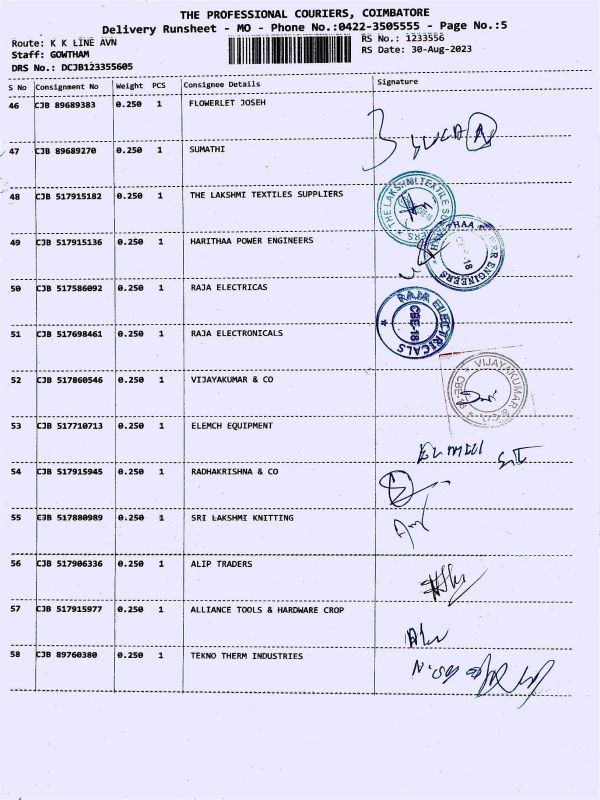 THE PROFESSIONAL COURIERS, COIMBATORE
Delivery Runsheet - MO - Phone No.:0422-3505555 - Page No.:5
Route: K K LINE AVN
RS No.: 1233556
Staff: GOWTHAM
RS Date: 30-Aug-2023
DRS No.: DCJB123355605
S No Consignment No Weight PCS Consignee Details Signature
46 CJB 89689383 0.250 1 FLOWERLET JOSEH
47 CJB 89689270 0.250 1 SUMATHI
48 CJB 517915182 0.250 1 THE LAKSHMI TEXTILES SUPPLIERS
THE LAKSHMI TEXTILE SUPPLIERS
49 CJB 517915136 0.250 1 HARITHAA POWER ENGINEERS
HARITHAA POWER ENGINEERS
CBE-18
50 CJB 517586092 0.250 1 RAJA ELECTRICAS
RAJA ELECTRICALS
CBE-18
51 CJB 517698461 0.250 1 RAJA ELECTRONICALS
52 CJB 517860546 0.250 1 VIJAYAKUMAR & CO
VIJAYAKUMAR & CO
CBE-18
53 CJB 517710713 0.250 1 ELEMCH EQUIPMENT
54 CJB 517915945 0.250 1 RADHAKRISHNA & CO
55 CJB 517880989 0.250 1 SRI LAKSHMI KNITTING
56 CJB 517906336 0.250 1 ALIP TRADERS
57 CJB 517915977 0.250 1 ALLIANCE TOOLS & HARDWARE CROP
58 CJB 89760380 0.250 1 TEKNO THERM INDUSTRIES